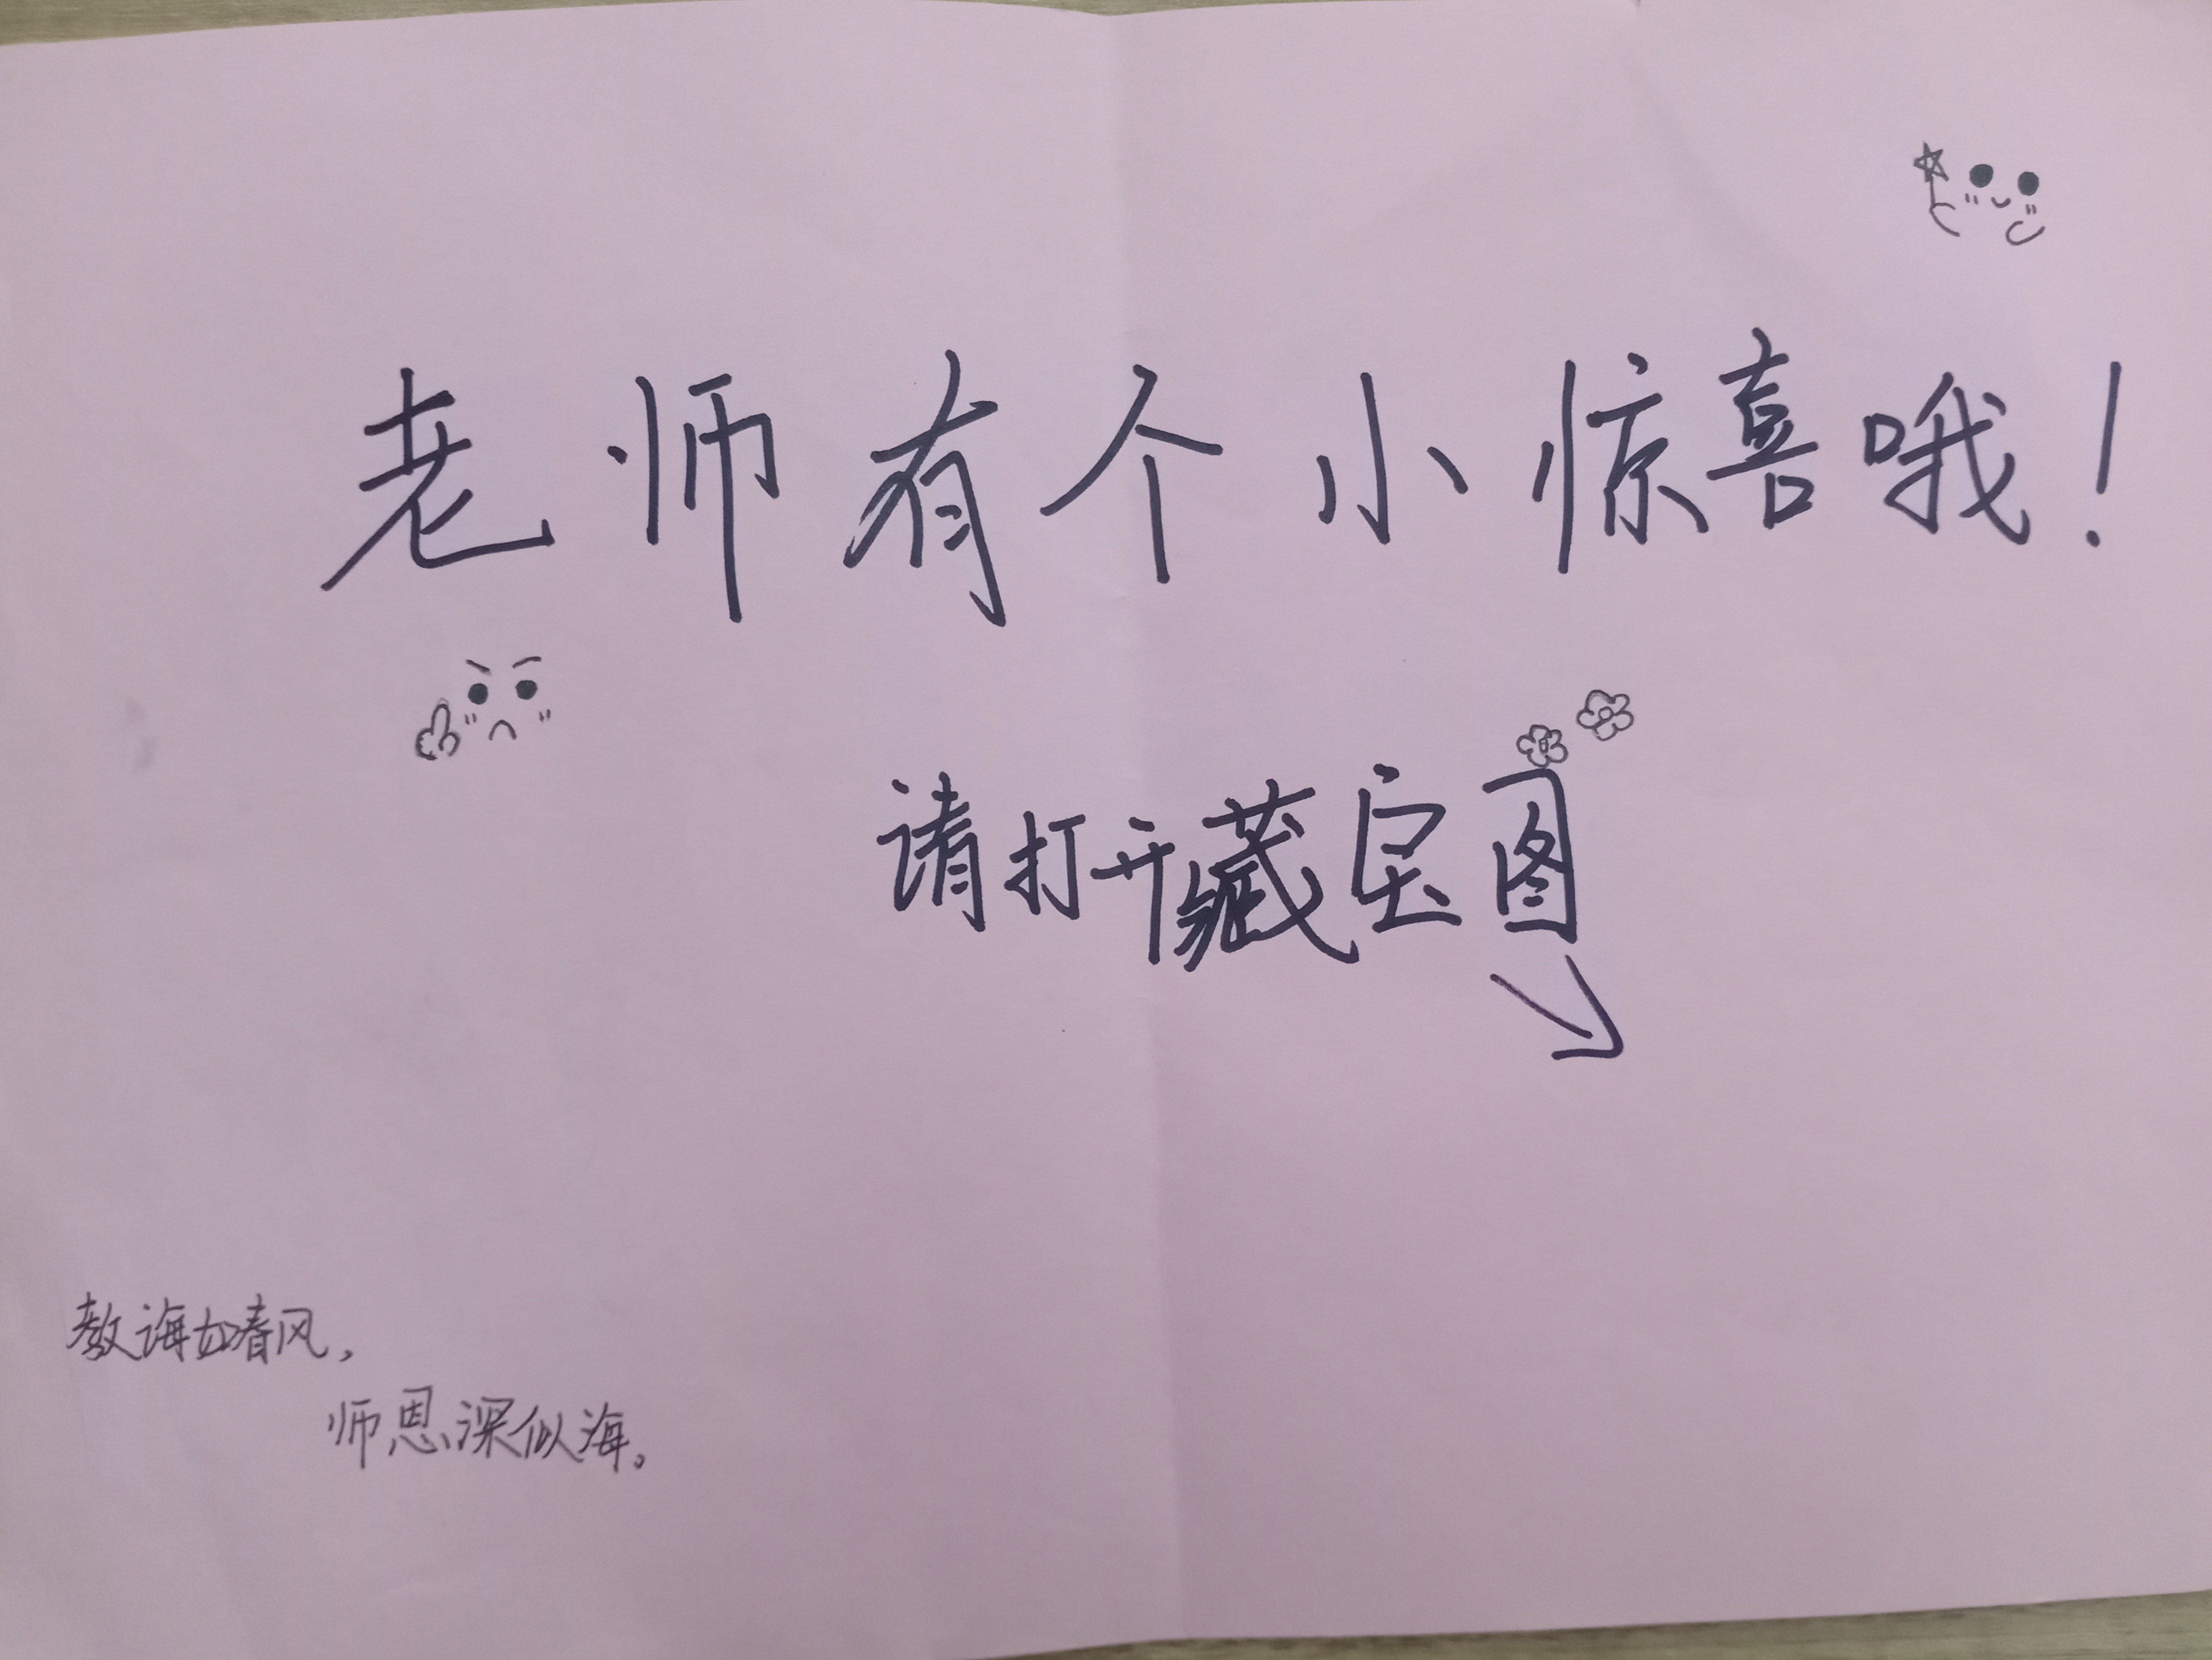 老师有个小惊喜哦！
请打开藏宝图
教诲如春风，
师恩深似海。